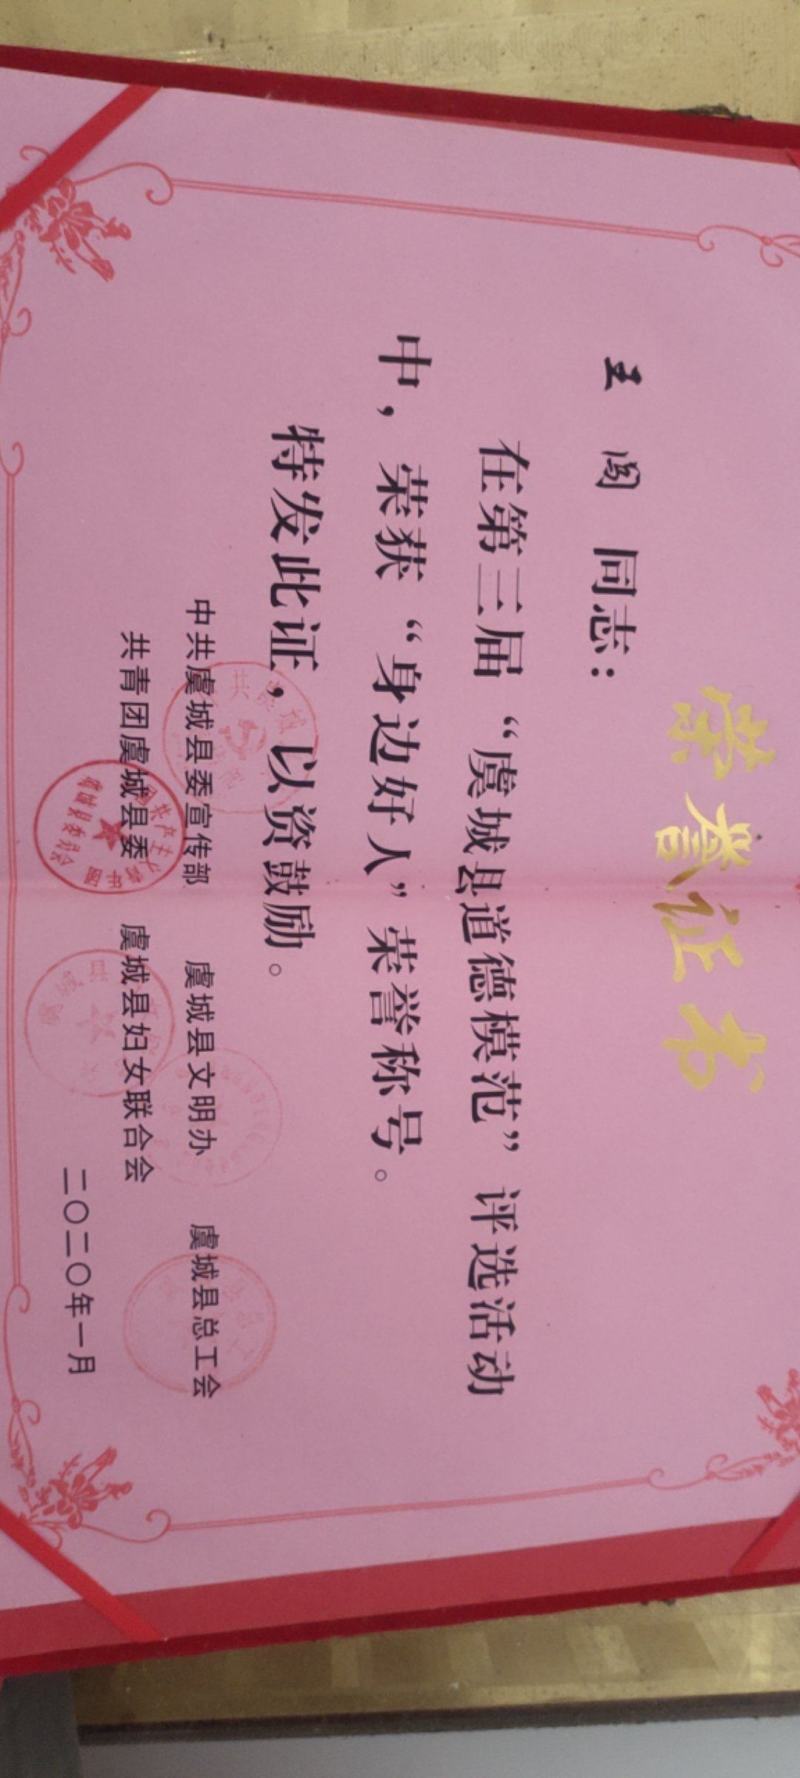 荣誉证书
王闯 同志：
在第三届“虞城县道德模范”评选活动
中，荣获“身边好人”荣誉称号。
特发此证，以资鼓励。
中共虞城县委宣传部 虞城县文明办 虞城县总工会
共青团虞城县委 虞城县妇女联合会
二〇二〇年一月